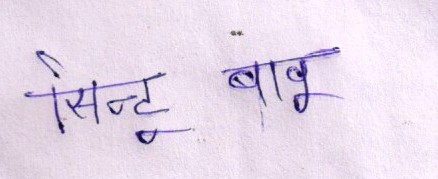 सिन्टू बाबू